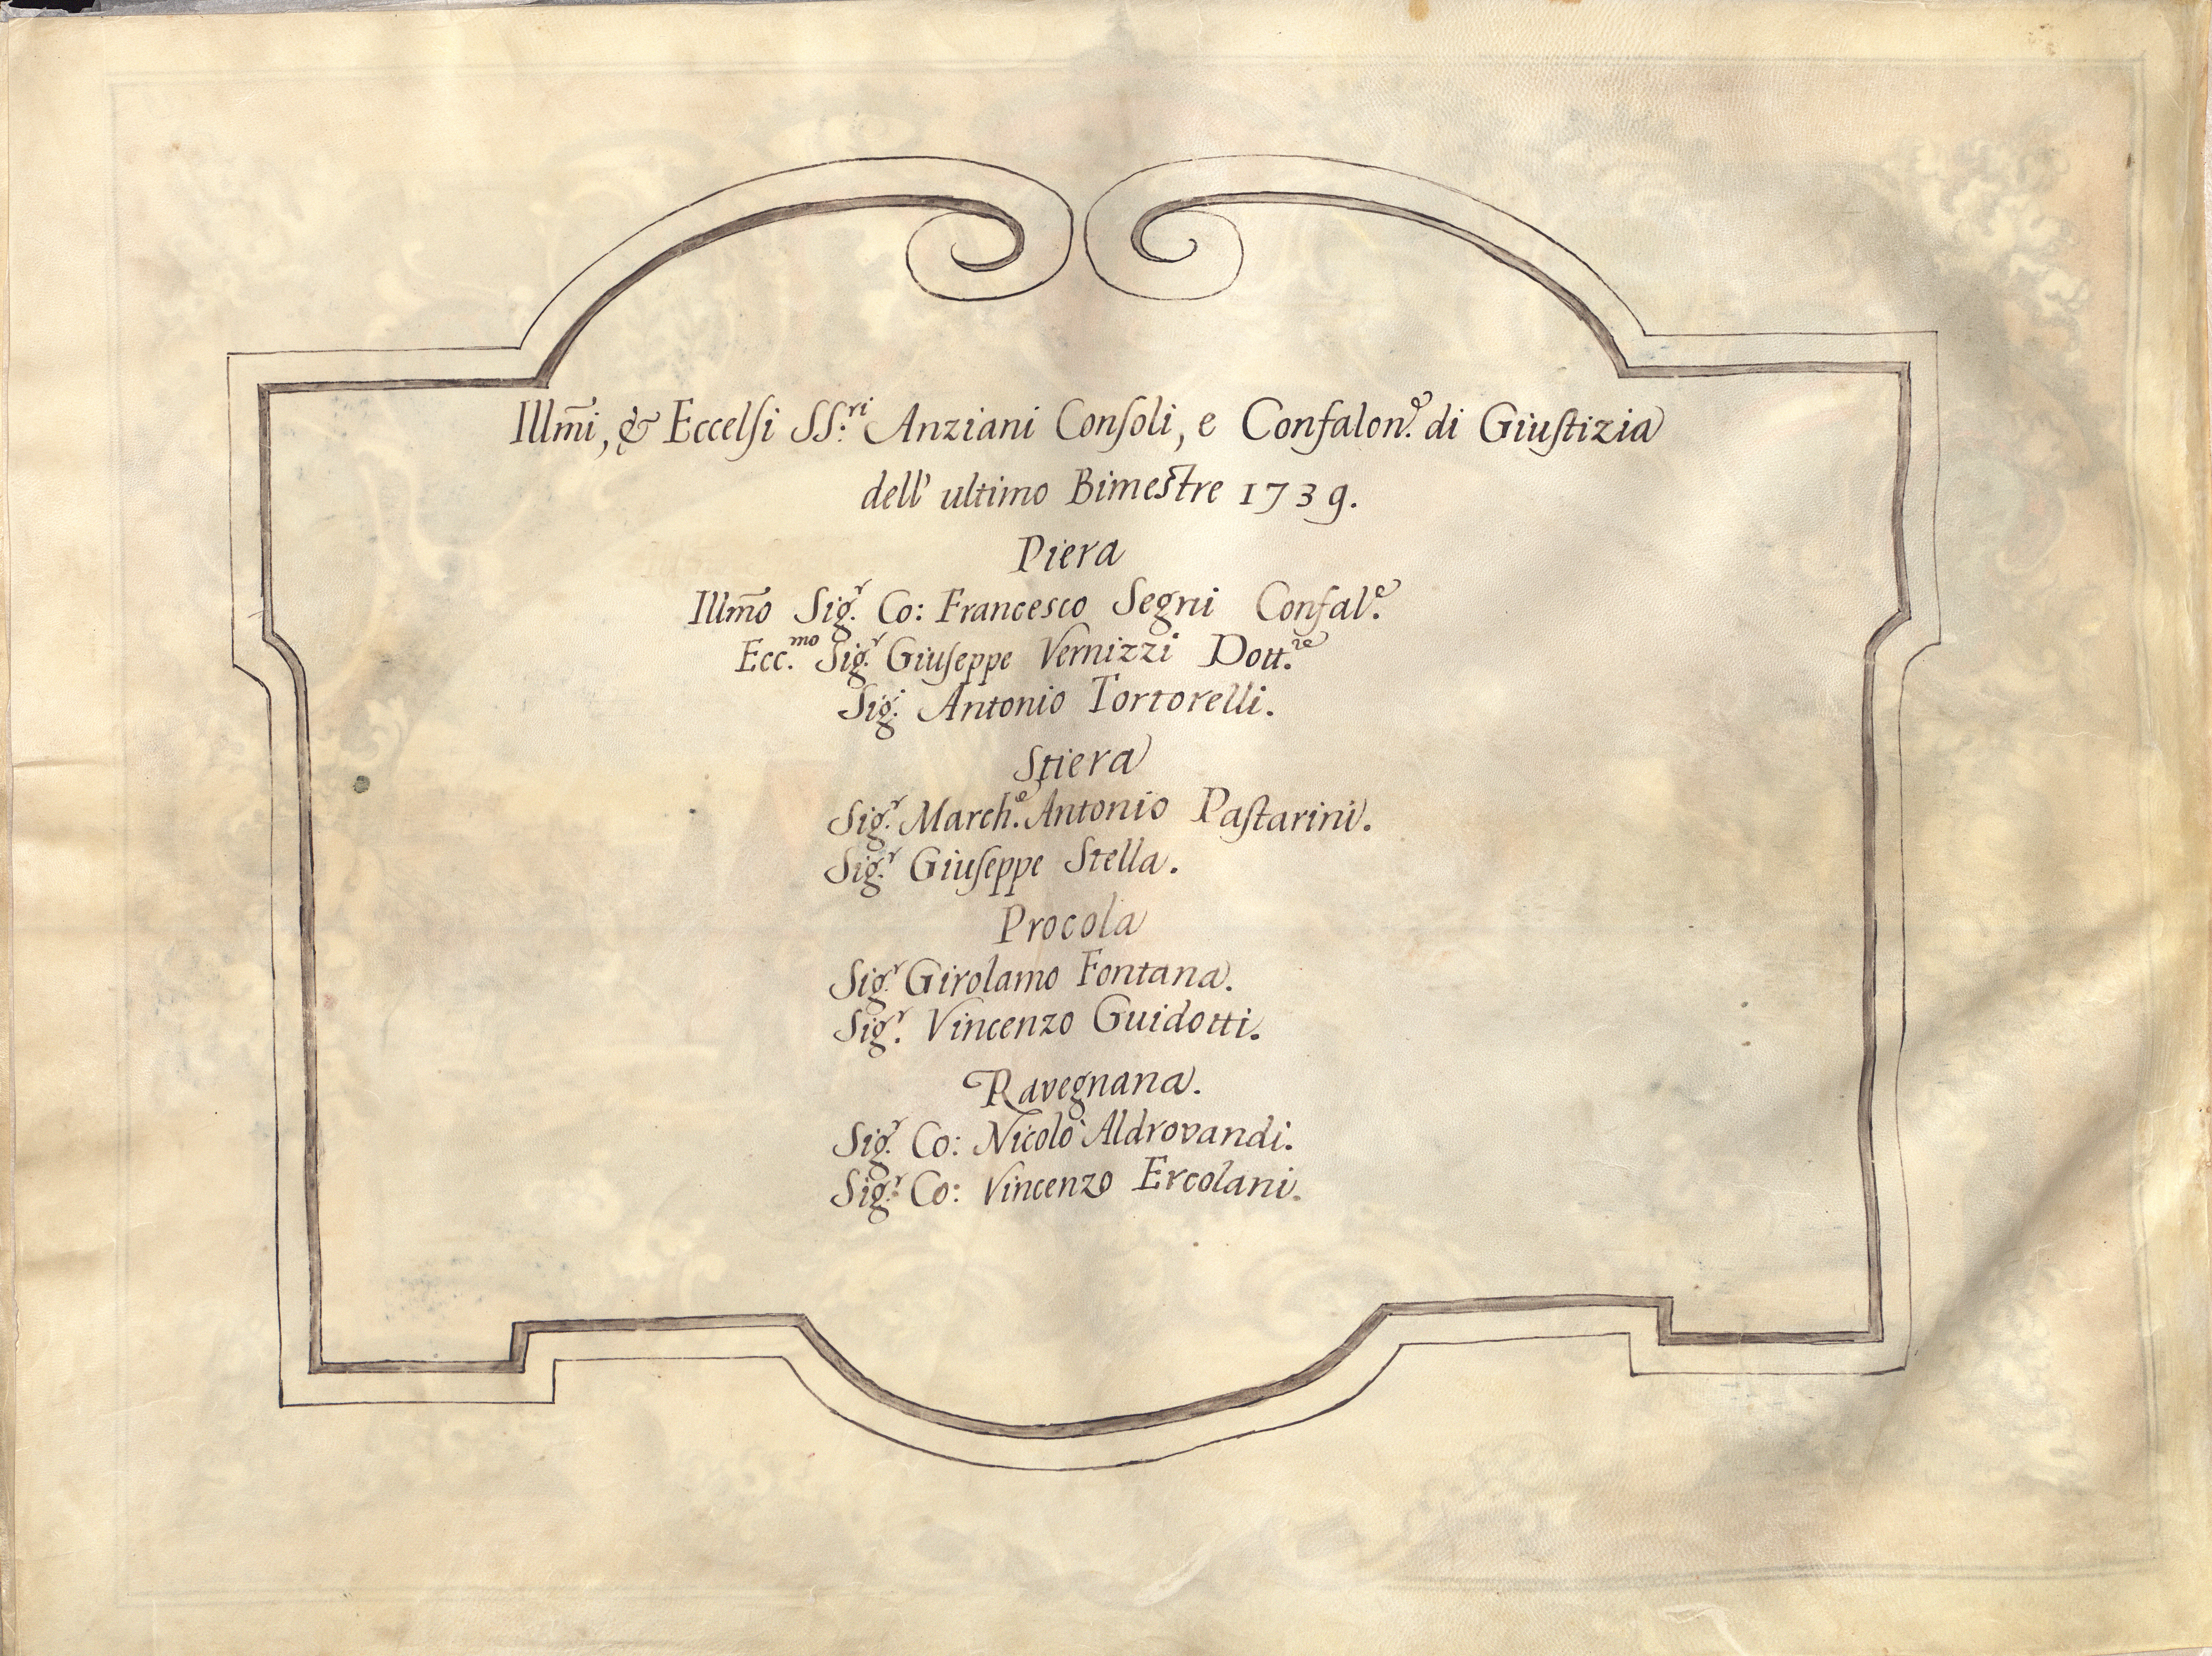 Illm̃i, & Eccelſi SS.ri Anziani Conſoli, e Confalon.e di Giuſtizia
dell' ultimo Bimestre 1739.
Piera
Illm̃o Sig.r Co: Francesco Segni Confal.e
Ecc.mo Sig.r Giuſeppe Vernizzi Dott.re
Sig.r Antonio Tortorelli.
Stiera
Sig.r March.e Antonio Paſtarini.
Sig.r Giuſeppe Stella.
Procola
Sig.r Girolamo Fontana.
Sig.r Vincenzo Guidotti.
Ravegnana.
Sig.r Co: Nicolò Aldrovandi.
Sig.r Co: Vincenzo Ercolani.